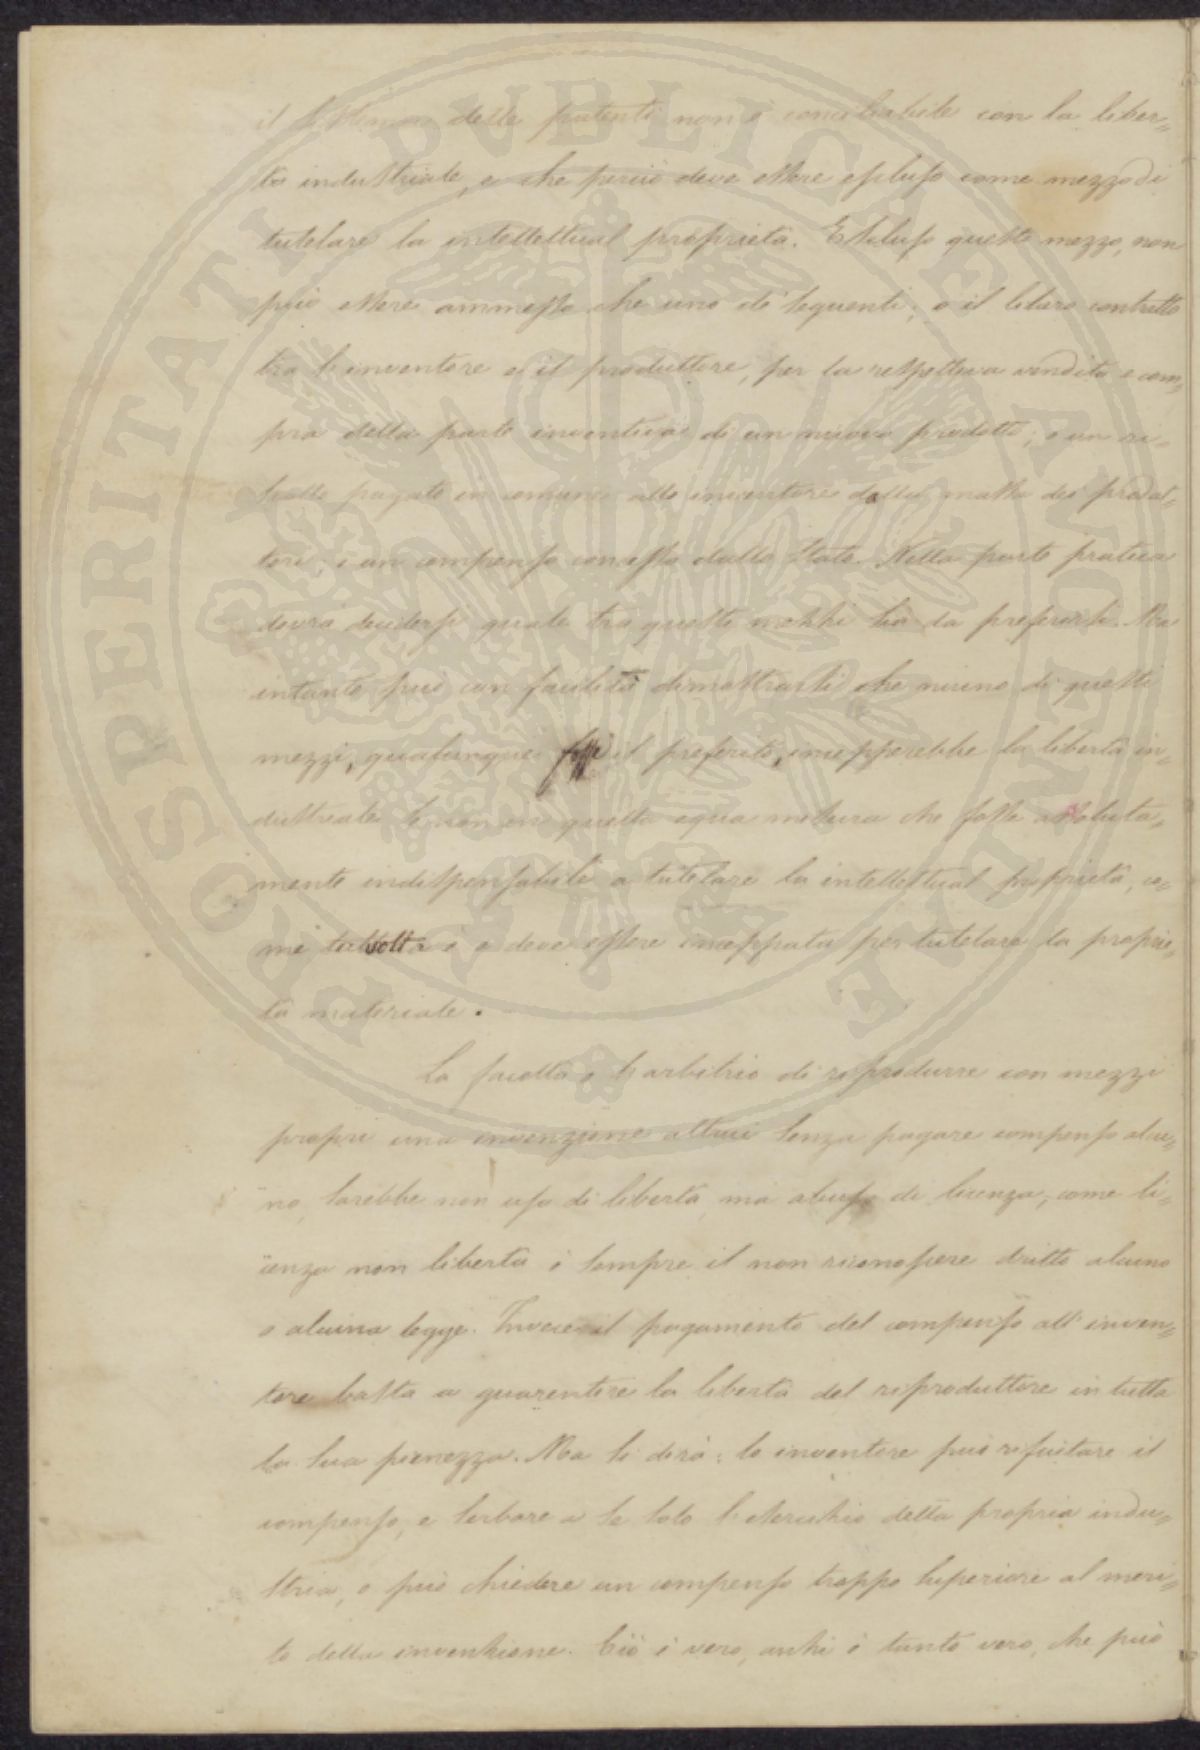 il sistema delle patenti non è conciliabile con la liber-
tà industriale, e che perciò deve essere escluso come mezzo di
tutelare la intellettual proprietà. Escluso questo mezzo, non
può essere ammesso che uno de' seguenti; o il libero contratto
tra l'inventore e il produttore, per la respettiva vendita e com-
pra della parte inventiva di un nuovo prodotto; o un ri-
scatto pagato in comune allo inventore dalla massa dei produt-
tori; o un compenso concesso dallo Stato. Nella parte pratica
dovrà decidersi quale tra questi mezzi sia da preferirsi. Ma
intanto può con facilità dimostrarsi che niuno di questi
mezzi, qualunque fosse il preferito, incepperebbe la libertà in-
dustriale se non in quella equa misura che fosse assoluta-
mente indispensabile a tutelare la intellettual proprietà, co-
me è e deve essere inceppata per tutelare la proprie-
tà materiale.
La facoltà o l'arbitrio di riprodurre con mezzi
propri una invenzione altrui senza pagare compenso alcu-
no, sarebbe non uso di libertà, ma abuso di licenza; come li-
cenza non libertà è sempre il non riconoscere dritto alcuno
o alcuna legge. Invece il pagamento del compenso all'inven-
tore basta a guarentire la libertà del riproduttore in tutta
la sua pienezza. Ma si dirà: lo inventore può rifiutare il
compenso, e serbare a se solo l'esercizio della propria indu-
stria, o può chiedere un compenso troppo superiore al meri-
to della invenzione. Ciò è vero, anzi è tanto vero, che può
PROSPERITATI PUBLICAE AUGENDAE